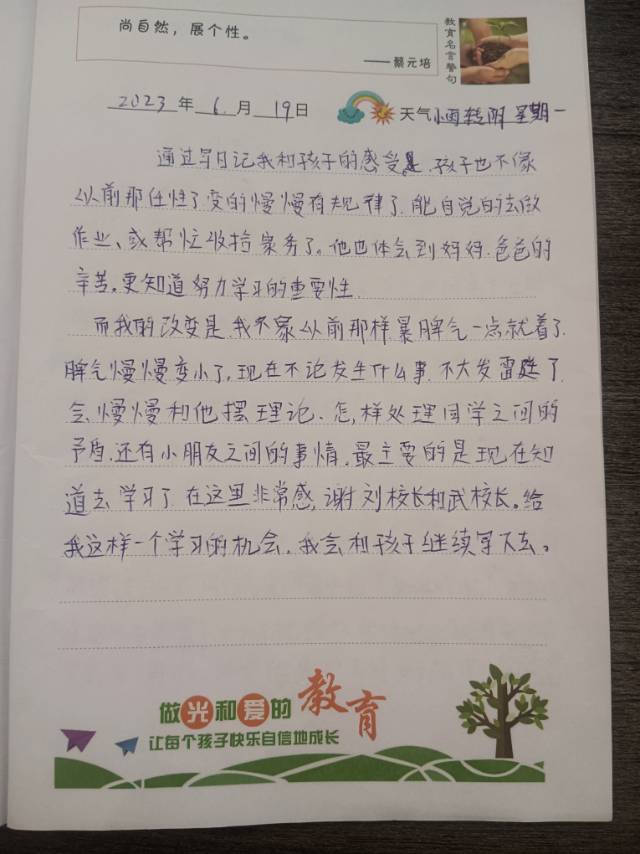 尚自然，展个性。
——蔡元培
教育名言警句
2023年6月19日 天气小雨转阴 星期一
通过写日记我和孩子的感受是.孩子也不像
从前那任性了变的慢慢有规律了.能自觉的去做
作业、或帮忙收拾家务了。他也体会到妈妈.爸爸的
辛苦。更知道努力学习的重要性.
而我的改变是.我不象从前那样暴脾气一点就着了.
脾气慢慢变小了，现在不论发生什么事.不大发雷庭了
会慢慢和他摆理论.怎，样处理同学之间的
矛盾.还有小朋友之间的事情，最主要的是现在知
道去学习了.在这里非常感，谢刘校长和武校长。给
我这样一个学习的机会，我会和孩子继续写下去。
做光和爱的教育
让每个孩子快乐自信地成长